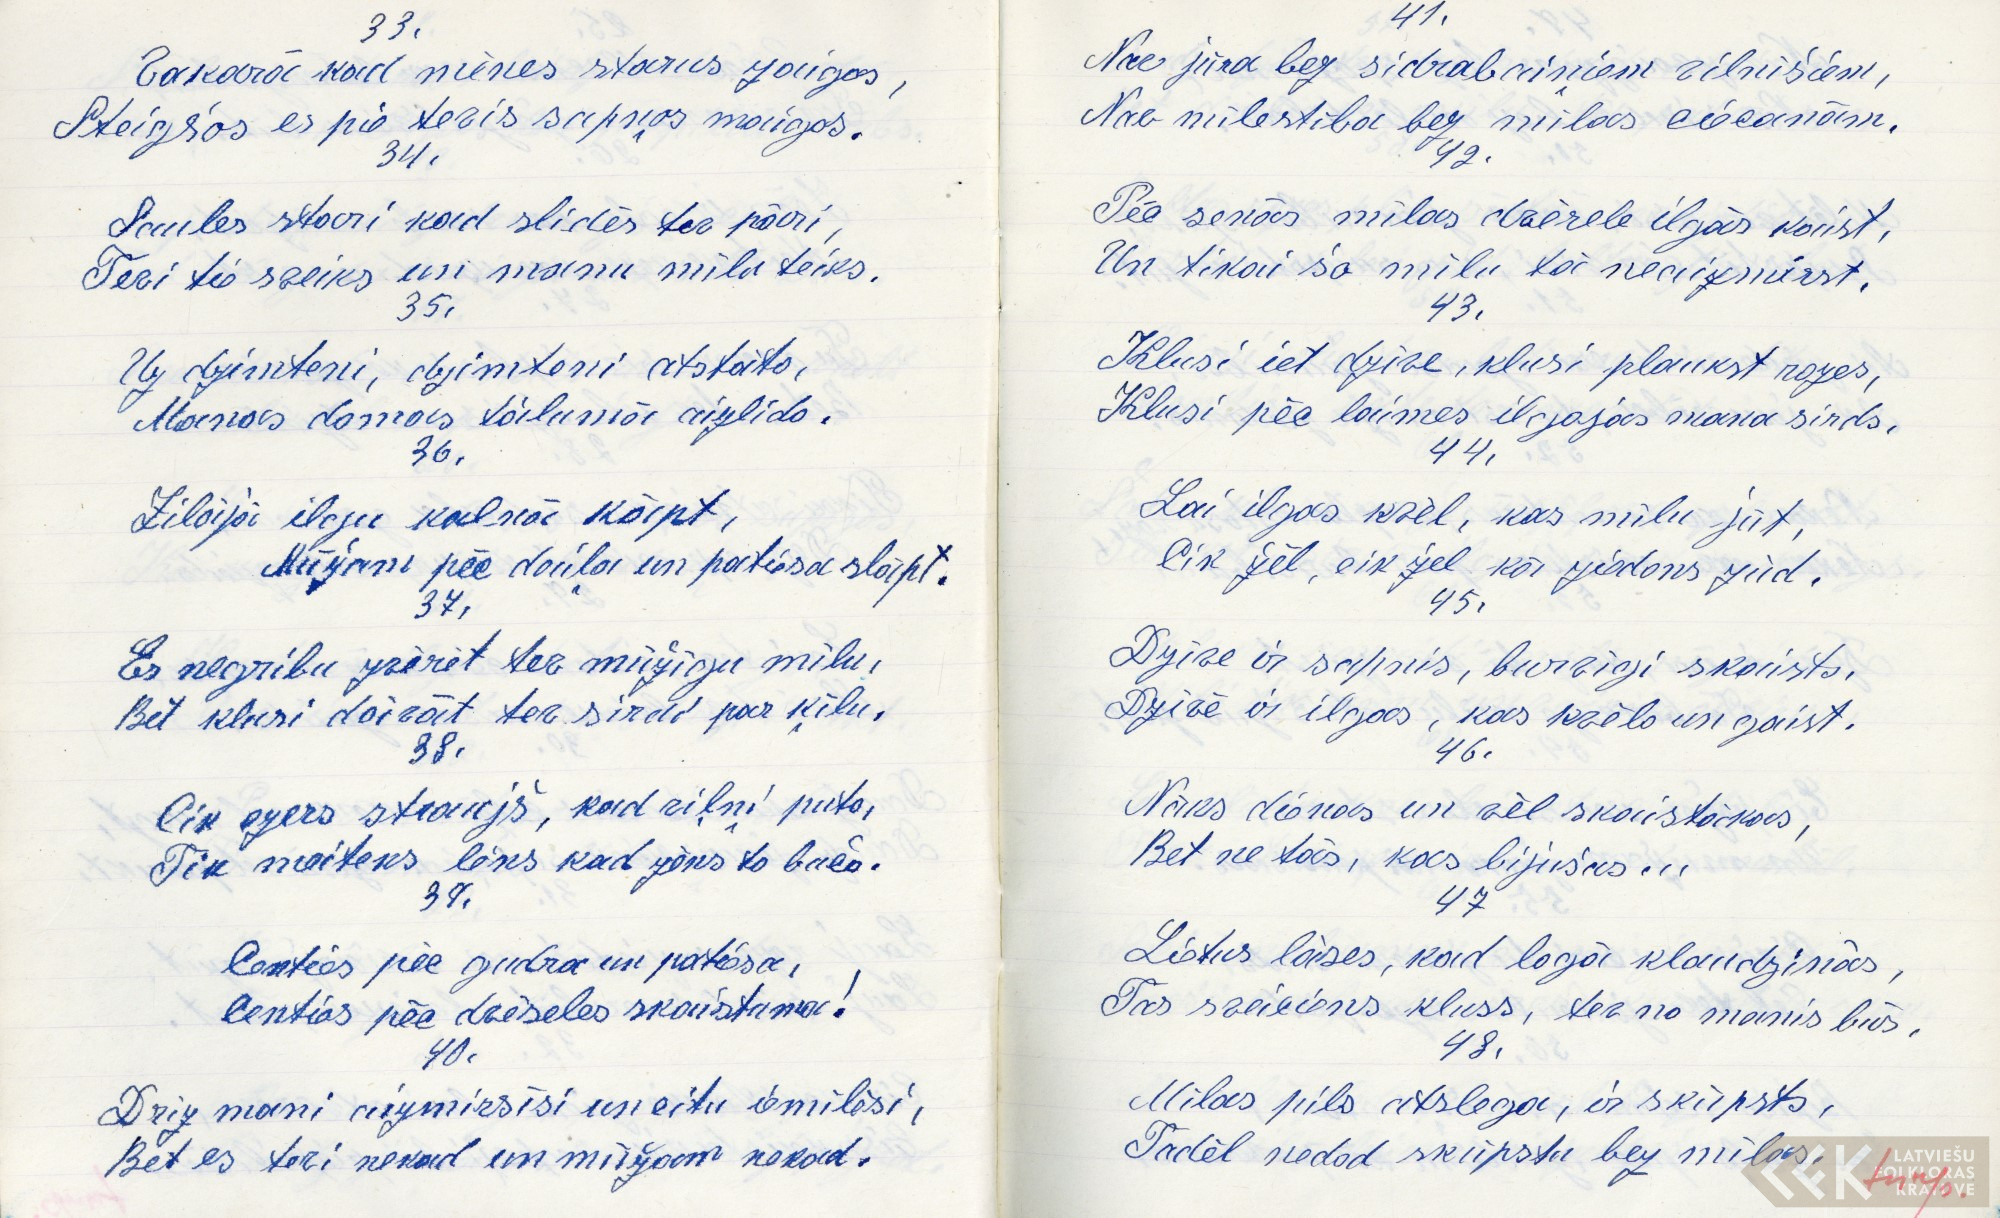 33.
Vakarā kad mēnes starus zaigos,
Steigšos es pie tevis sapņos maigos.
34.
Saules stari kad slīdēs tev pāri,
Tevi tie sveiks un manu mīlu teiks.
35.
Uz dzimteni, dzimteni atstāto,
Manas domas tālumā aizlido.
36.
Zilājā ilgu kalnā kāpt,
Mūžam pēc daiļa un patiesa slāpt.
37.
Es negribu zvērēt tev mūžīgu mīlu,
Bet klusi dāvāt tev sirdi par ķīlu.
38.
Cik ezers straujš, kad viļņi puto,
Tik meitens lēks kad zēns to bučo.
39.
Centies pēc gudra un patiesa,
Centies pēc dvēseles skaistuma!
40.
Drīz mani aizmirsīsi un citu iemīlēsi,
Bet es tevi nekad un mūžam nekad.
41.
Nav jūra bez sidrabaiņiem vilnīšiem,
Nav mīlestība bez mīlas ciešanām.
42.
Pēc senās mīlas dvēsele ilgās kaist,
Un tikai šo mīlu tā neaizmirst.
43.
Klusi iet dzīve, klusi plaukst rozes,
Klusi pēc laimes ilgojas mana sirds.
44.
Lai ilgas kvēl, kas mīlu jūt,
Cik žēl, cik žēl ka ziedons zūd.
45.
Dzīve ir sapnis, burvīgi skaists,
Dzīvē ir ilgas, kas kvēlo un gaist.
46.
Nāks dienas un vēl skaistākas,
Bet ne tās, kas bijušas...
47
Lietus lāses, kad logā klaudzinās,
Tas sveiciens kluss, tev no manis būs.
48.
Mīlas pils atslēga, ir skūpsts,
Tādēļ nedod skūpstu bez mīlas.
turp.
LATVIEŠU
FOLKLORAS
KRĀTUVE